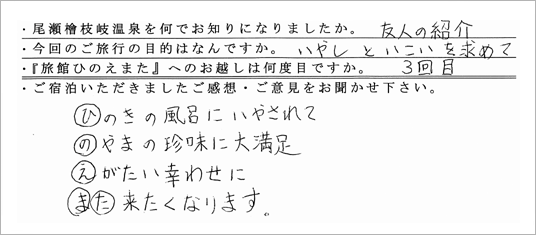 ・尾瀬檜枝岐温泉を何でお知りになりましたか。 友人の紹介
・今回のご旅行の目的はなんですか。 いやしといこいを求めて
・『旅館ひのえまた』へのお越しは何度目ですか。 3回目
・ご宿泊いただきましたご感想・ご意見をお聞かせ下さい。
ひのきの風呂にいやされて
のやまの珍味に大満足
えがたい幸わせに
また来たくなります。